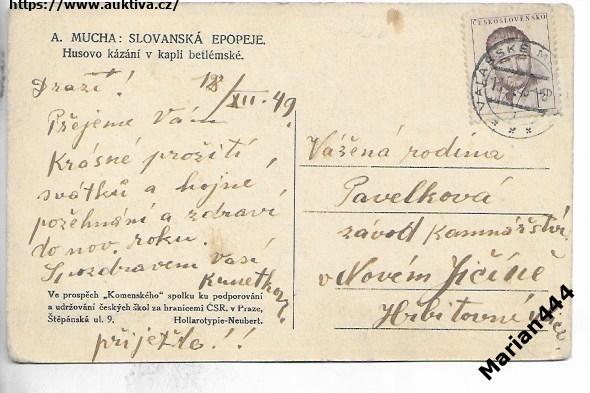 https://www.auktiva.cz/
A. MUCHA: SLOVANSKÁ EPOPEJE.
Husovo kázání v kapli betlémské.
ČESKOSLOVENSKO
VALAŠSKÉ M
18/XII. 49
Drazí!
Přejeme Vám
Krásné prožití
svátků a hojně
požehnání a zdraví
do nov. roku.
S pozdravem vaší
Ve prospěch „Komenského" spolku ku podporování
a udržování českých škol za hranicemi ČSR. v Praze,
Štěpánská ul. 9. Hollarotypie-Neubert.
přijeďte!!
Vážená rodina
Pavelková
závod kamnářství
v Novém Jičíně
Hřbitovní
Marian444